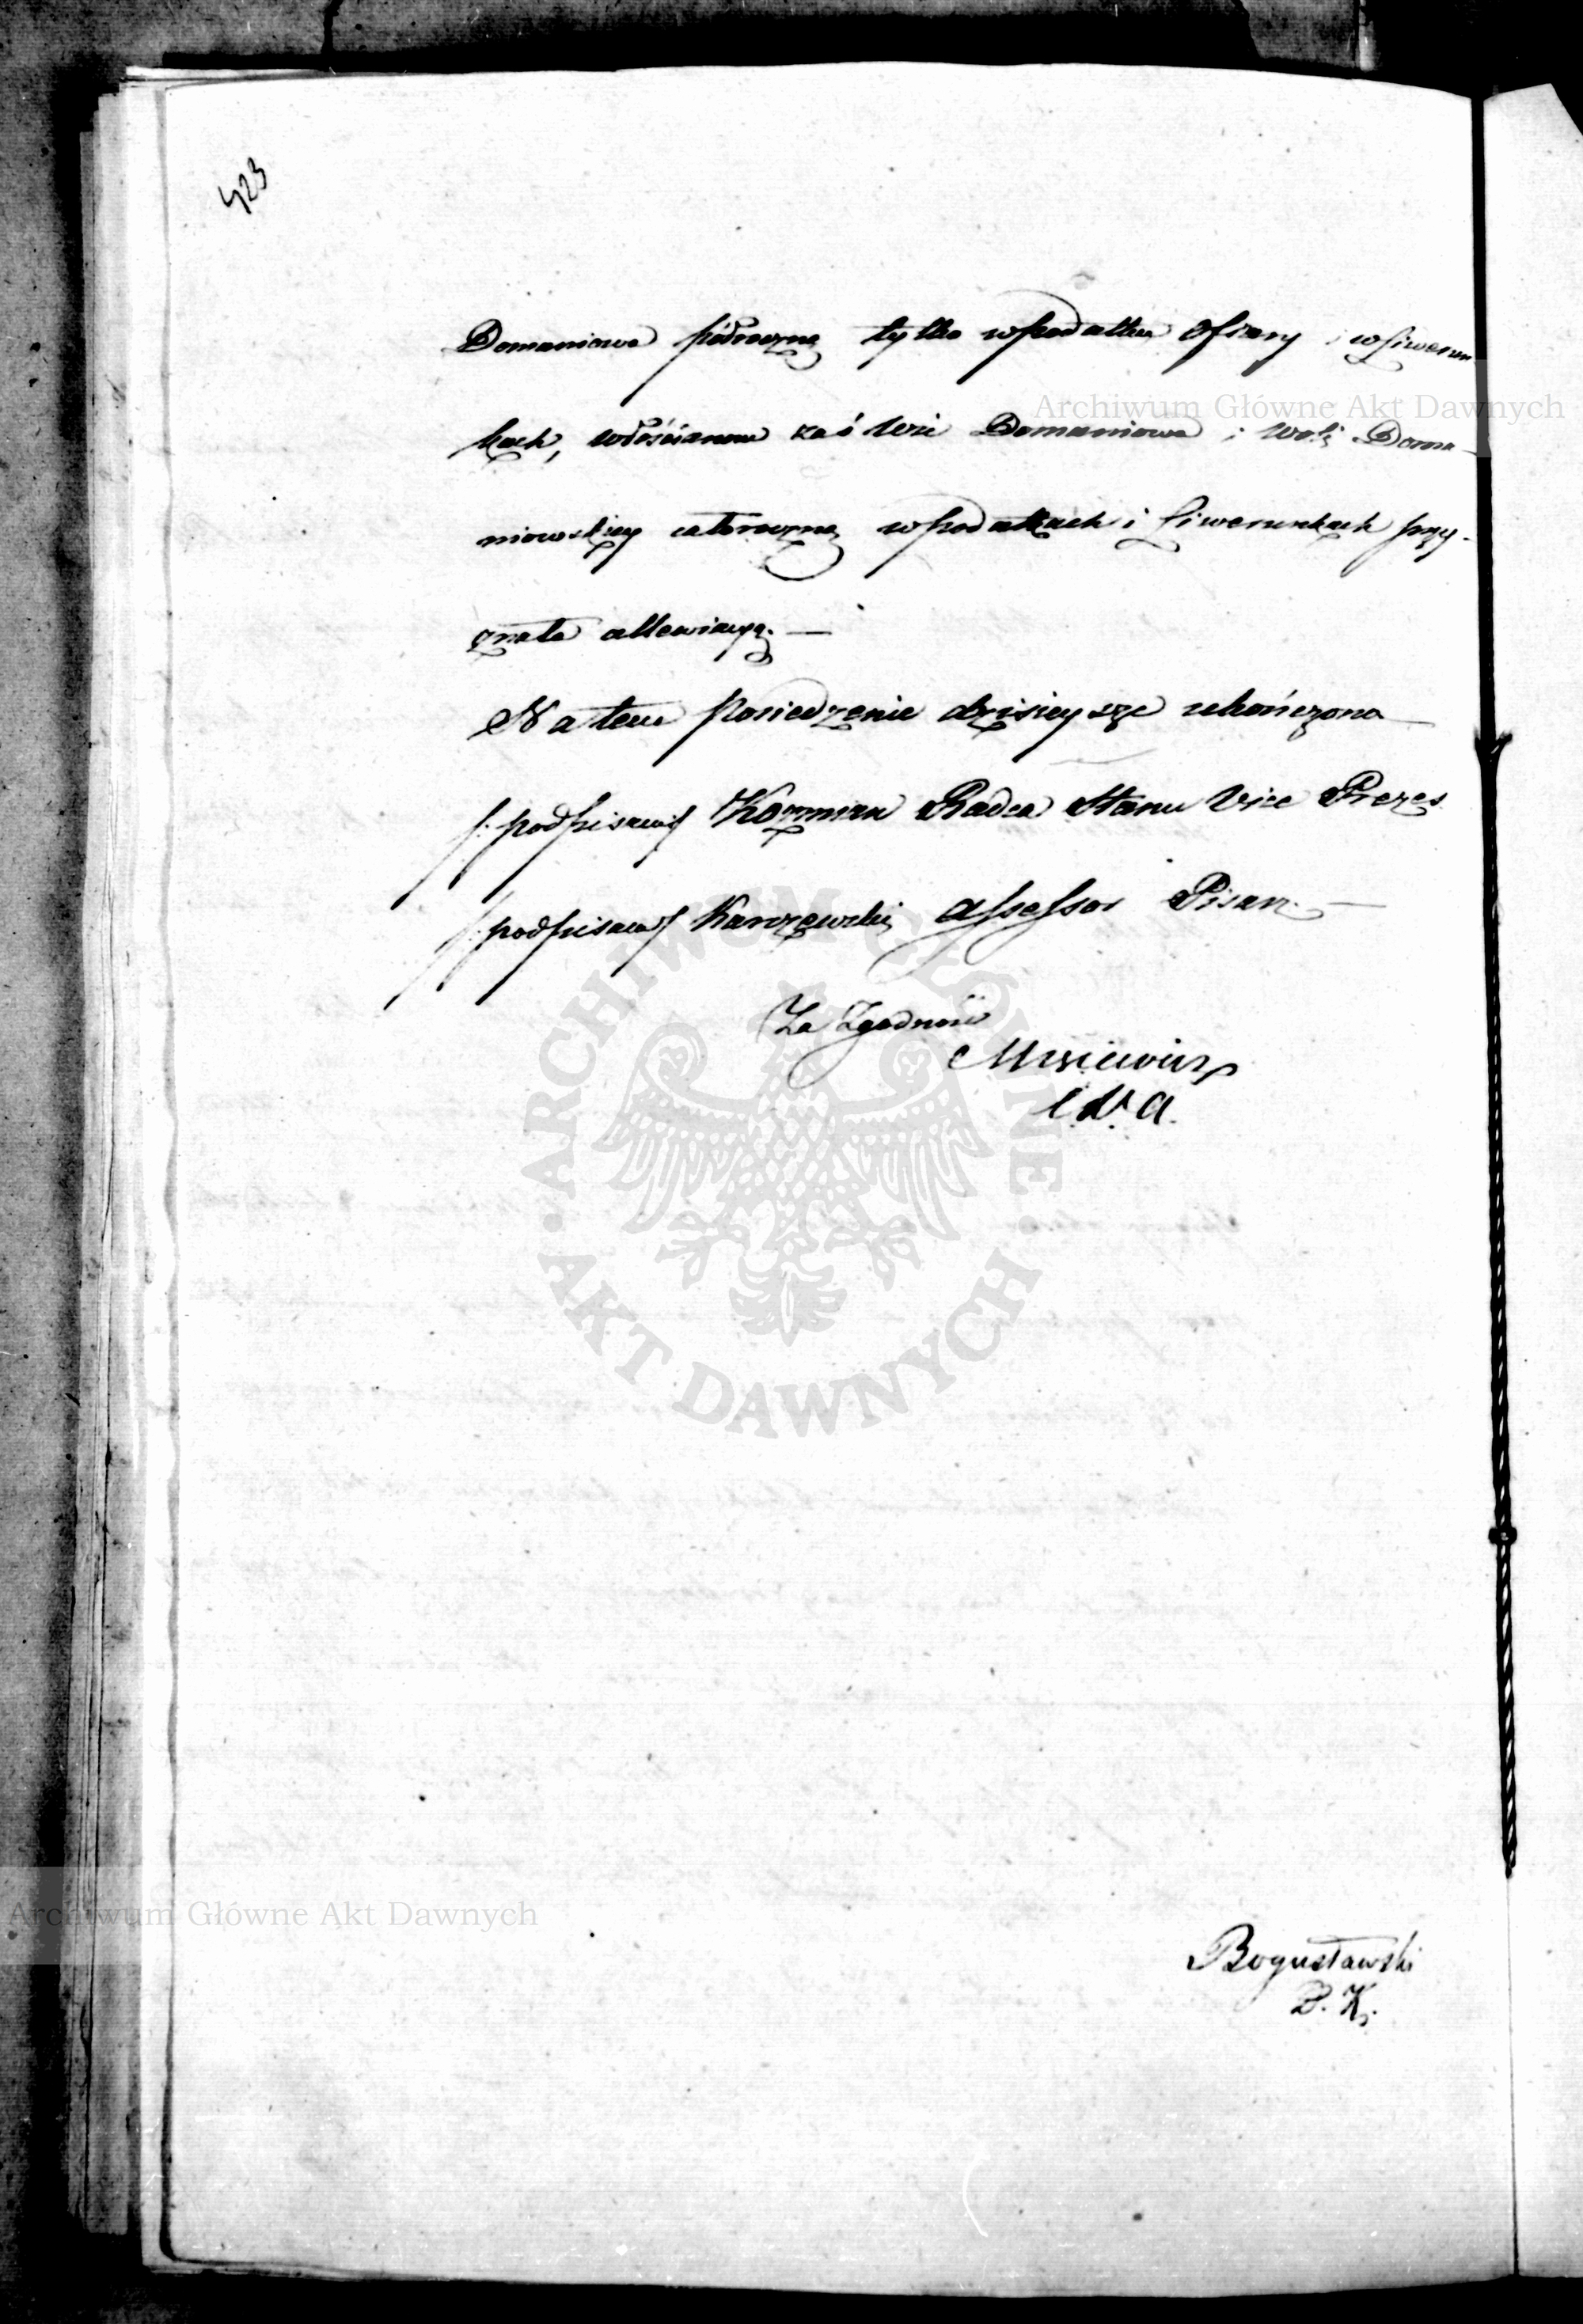 423
Domaniowa półroczną tylko w podatku Ofiary i w liwerun
kach, włościanom zaś wsi Domaniowa i Woli Doma
niowskiey całoroczną w podatkach i Liwerunkach przy-
znała allewiacyą. —
Na tem Posiedzenie dzisieysze ukończono
/: podpisano/ Kozmian Radca Stanu Vice Prezes
/: podpisano/ Karczewski Assessor Pisarz —
Za Zgodność
Bogusławski
Archiwum Główne Akt Dawnych
ARCHIWUM GŁÓWNE AKT DAWNYCH
Archiwum Główne Akt Dawnych